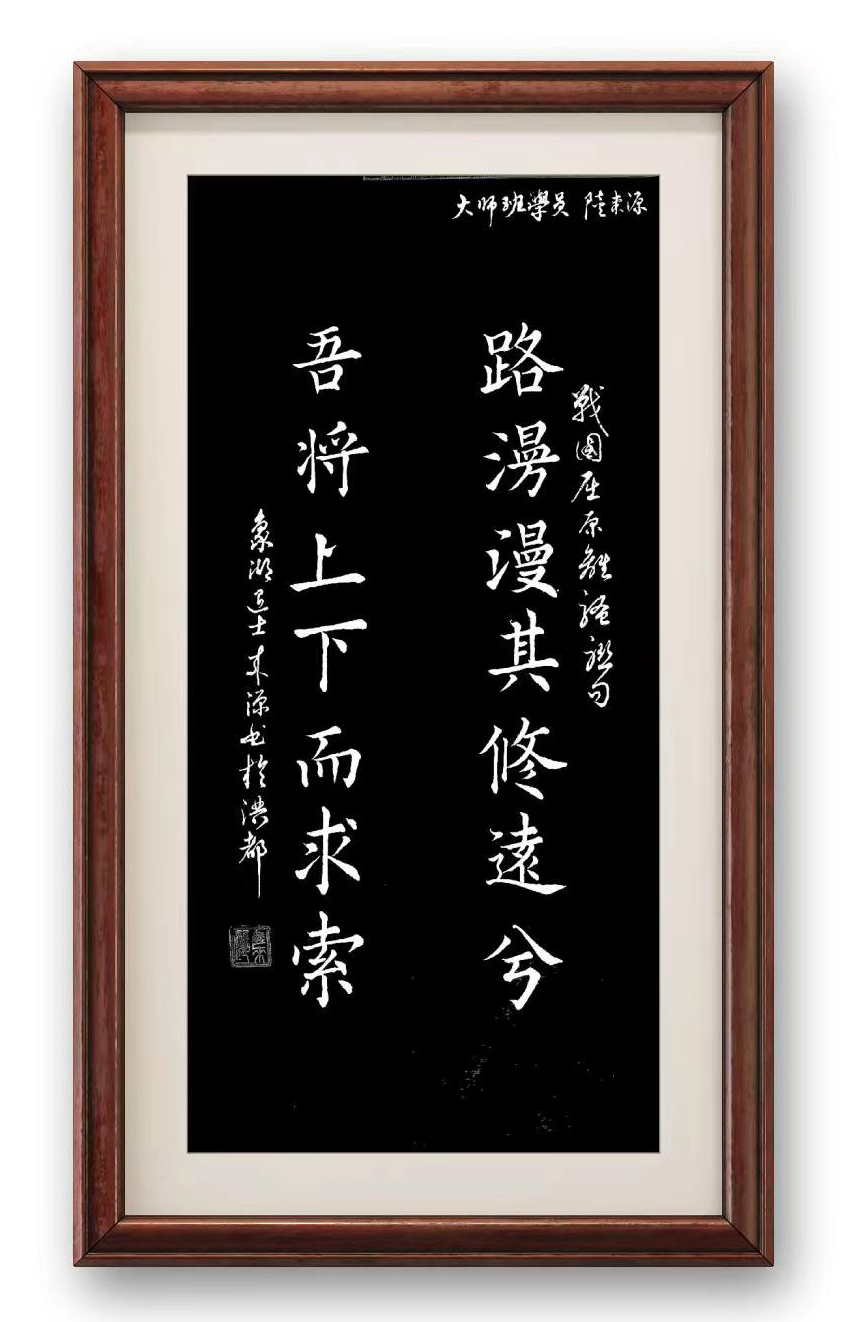 大师班學员 陸来源
戰國屈原離騷聯句
路漫漫其修遠兮
吾将上下而求索
象湖士来源书於洪都